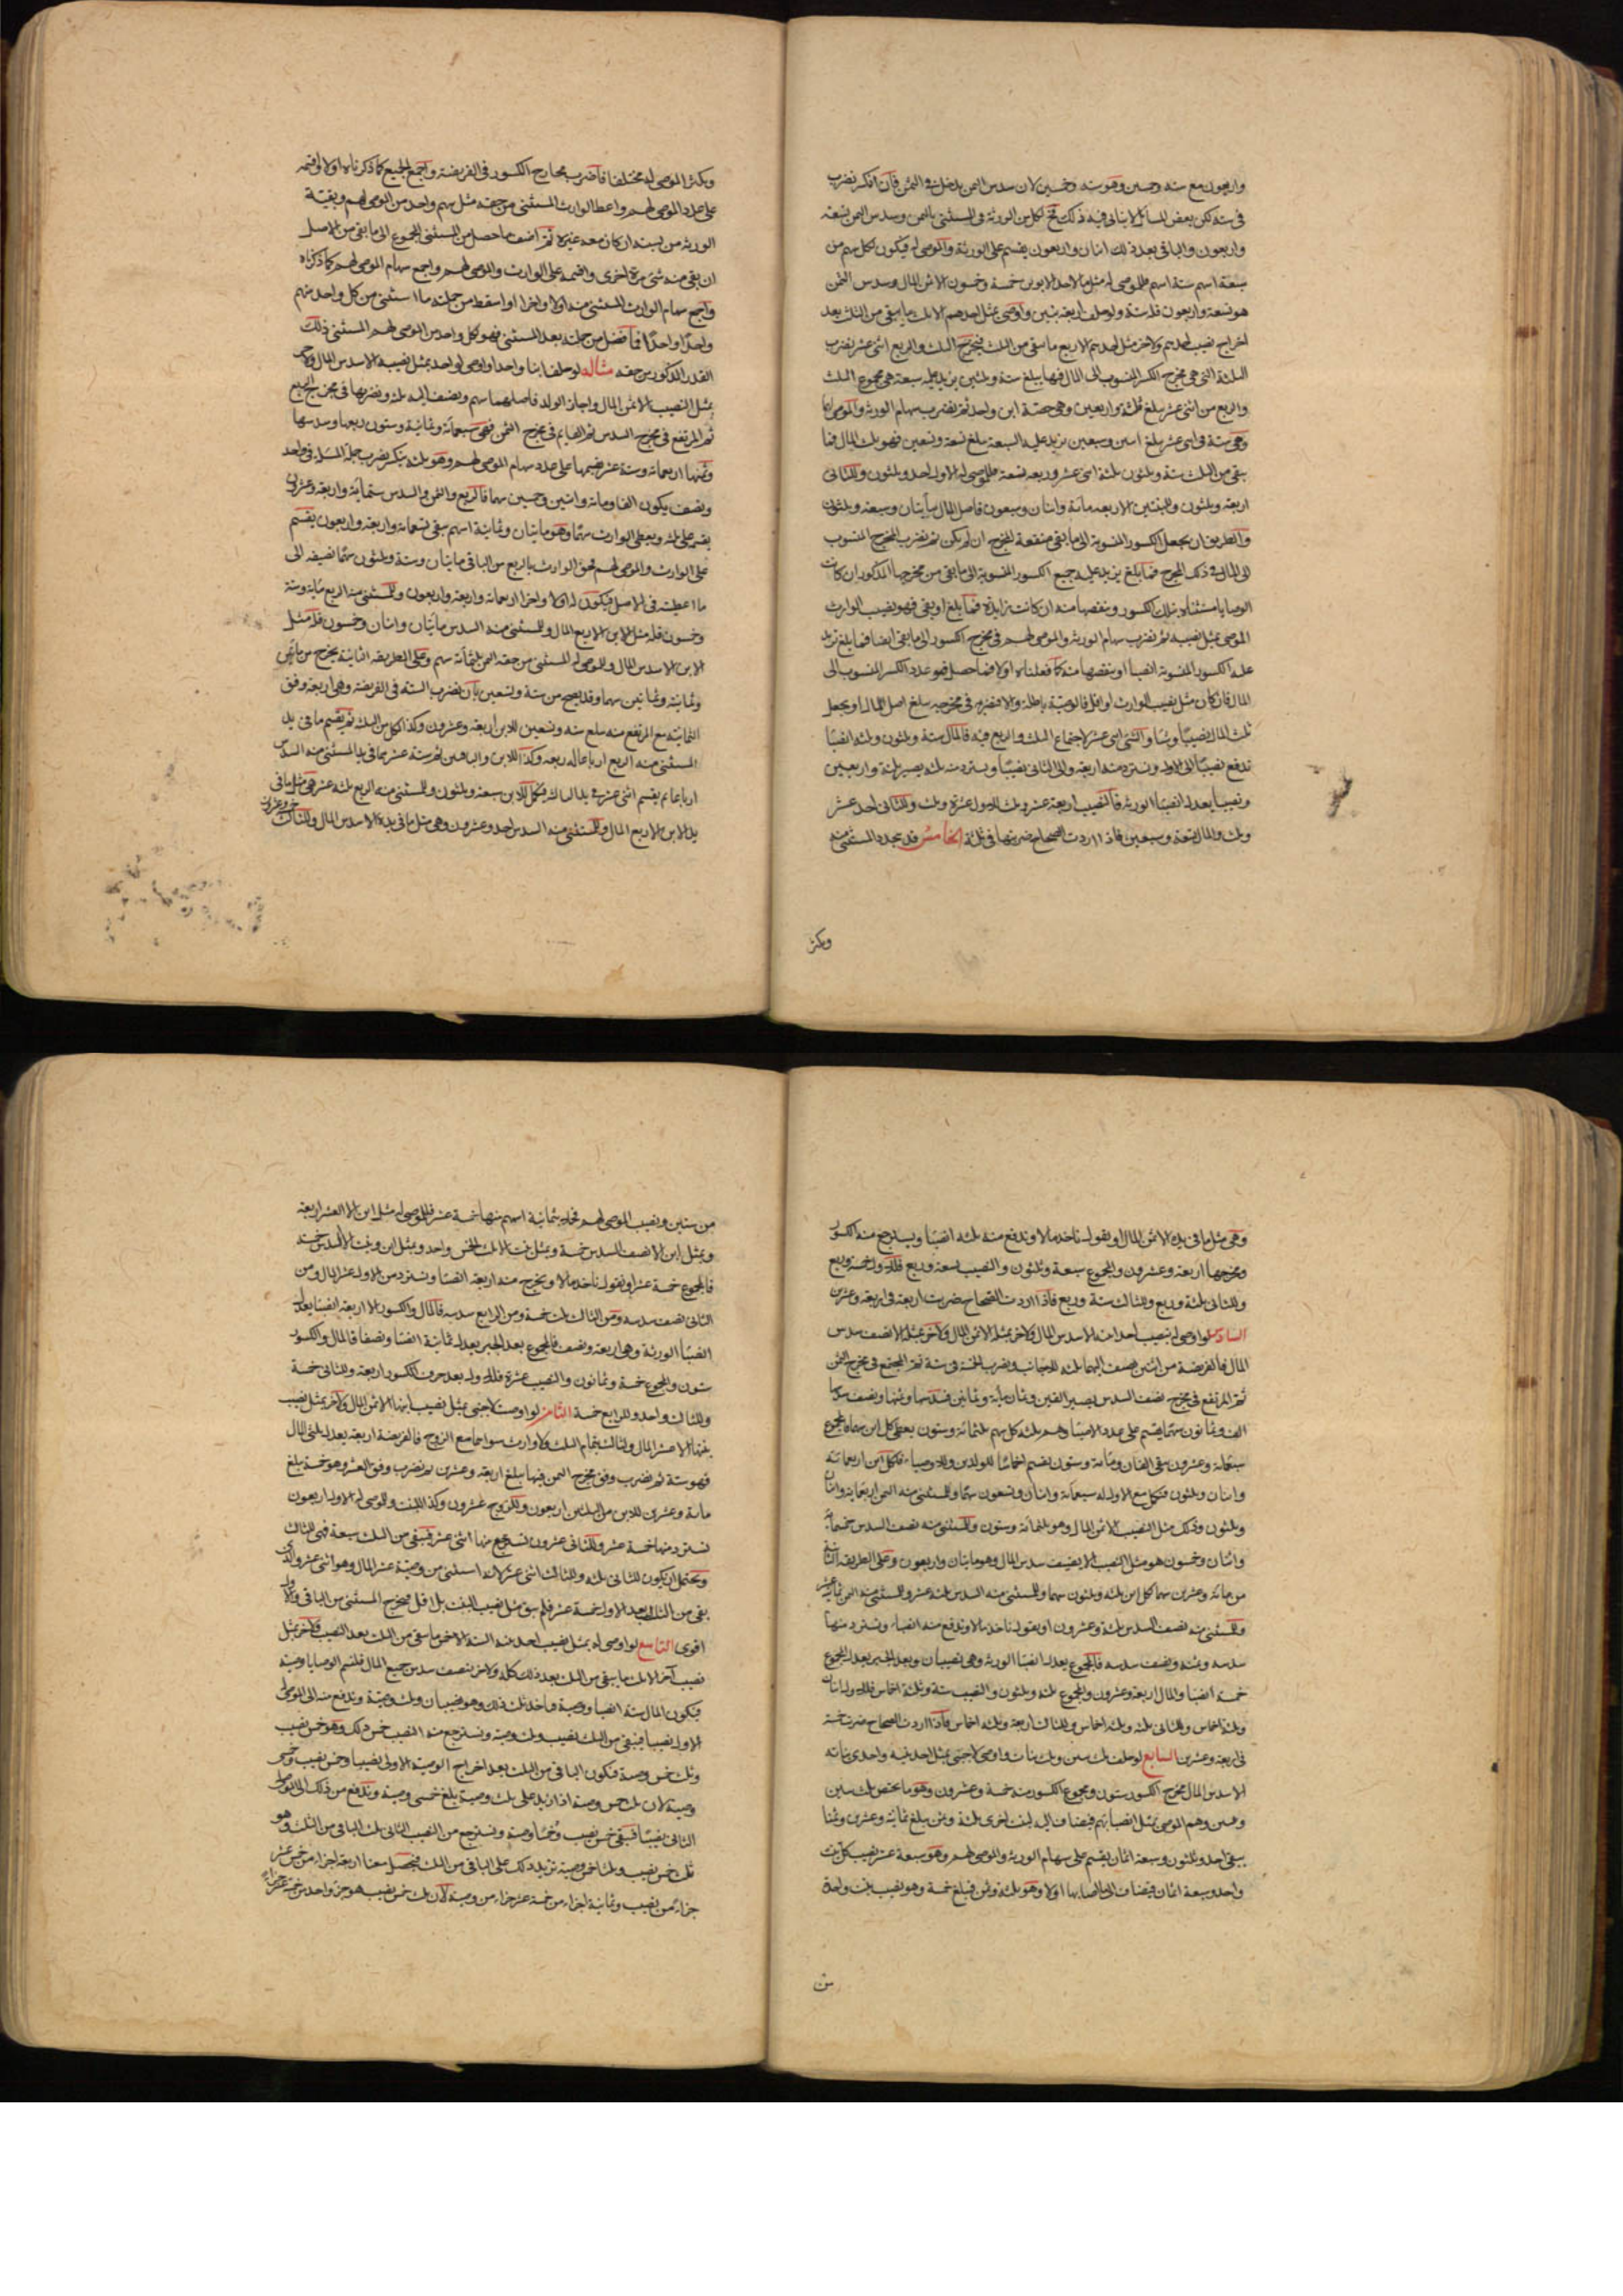 واربعون مع ستة وخمسين وهو ستة وخمسين لان سدس الثمن يدخل في الثمن فان انكسر نضرب
في ستة لكن بعض المسائل لا يتأتى فيه ذلك لكل من الورثة في المستثنى بالثمن وسدس الثمن تسعة
واربعون والباقي بعد ذلك اثنان واربعون يقسم على الورثة والموصى له فيكون لكل سهم من
سبعة اسهم ستة اسهم فللموصى له مثل ما لاحد الابوين خمسة وخمسون الا ثمن المال وسدس الثمن
هو تسعة واربعون فله ستة ولو خلف اربعة بنين واوصى بمثل احدهم الا ثلث ما يبقى من الثلث بعد
اخراج نصيب احدهم ولآخر مثل احدهم الا ربع ما يبقى من الثلث فمخرج الثلث والربع اثنى عشر نضرب
الثلثة التي هي مخرج الكسر المنسوب الى المال فيها يبلغ ستة وثلثين نزيد عليه سبعة هي مجموع الثلث
والربع من اثنى عشر يبلغ ثلثة واربعين وهي حصة ابن واحد ثم نضرب سهام الورثة والموصى لهما
وهي ستة في اثنى عشر يبلغ اثنين وسبعين نزيد عليه السبعة يبلغ تسعة وسبعين فهو ثلث المال فما
بقي من الثلث ستة وثلثون ثلثه اثنى عشر وربعه تسعة فللموصى له الاول احد وثلثون وللثاني
اربعة وثلثون وللبنين الاربعة مائة واثنان وسبعون فاصل المال مأتان وسبعة وثلثون
والطريق ان يجعل الكسور المنسوبة الى ما يبقى متفقة المخرج ان لم يكن ثم نضرب المخرج المنسوب
الى المال في ذلك المخرج فما بلغ نزيد عليه جميع الكسور المنسوبة الى ما يبقى من مخرجها المذكور ان كانت
الوصايا مستثناة بتلك الكسور وينقصها منه ان كانت زايدة فما يبلغ او يبقى فهو نصيب الوارث
الموصى بمثل نصيبه ثم نضرب سهام الورثة والموصى لهم في مخرج الكسور الى ما يبقى ايضا فما بلغ نزيد
عليه الكسور المنسوبة ايضا او ينقصها منه كما فعلناه اولا فما حصل فهو عدد الكسر المنسوب الى
المال فان كان مثل نصيب الوارث او اقل فالوصية باطلة والا فنضربه في مخرجه يبلغ اصل المال او يجعل
ثلث المال نصيبا وشيأ والشئ اثنى عشر لاجتماع الثلث والربع فيه فالمال ستة وثلثون وثلثة انصبا
ندفع نصيبا الى الاول ونسترد منه اربعة والى الثاني نصيبا ونسترد منه ثلثة يصير ثلثة واربعين
ونصيبا يعدل انصبا الورثة فالنصيب اربعة عشر وثلث للاول عشرة وثلث وللثاني احد عشر
وثلث والمال تسعة وسبعين فاذا اردت الصحاح ضربتها في ثلثة الخامس قد يتعدد المستثنى منه
ويكثر
ويكثر الموصى له مختلفا فاضرب مخارج الكسور في الفريضة واجمع الجميع كما ذكرناه اولا واقسمه
على عدد الموصى لهم واعط الوارث المستثنى من حقه مثل سهم واحد من الموصى لهم وبقية
الورثة من نسبته ان كان معه غيره ثم اضف ما حصل من المستثنى المجموع الى ما بقي من الاصل
ان بقي منه شئ مرة اخرى واقسمه على الوارث والموصى لهم واجمع سهام الموصى لهم كما ذكرناه
واجمع سهام الوارث المستثنى منه اولا واخرا او اسقط من جملته ما استثنى من كل واحد منهم
واحدا واحدا فما فضل من جملته بعد المستثنى فهو لكل واحد من الموصى لهم المستثنى ذلك
القدر المذكور من حقه مثاله لو خلف ابنا واحدا واوصى لواحد بمثل نصيبه الا سدس المال ولآخر
بمثل النصيب الا ثمن المال واجاز الولد فاصلهما سهم ونضيف اليه ثلثه ونضربها في مخرج الربع
ثم المرتفع في مخرج السدس ثم القايم في مخرج الثمن فهي سبعمائة وثمانية وستون ربعها وسدسها
وثمنها اربعمائة وستة عشر نقسمها على عدد سهام الموصى لهم وهو ثلثة ينكسر نضرب جملة المسئلة في واحد
ونصف يكون الفا ومائة واثنين وخمسين سهما فالربع والثمن والسدس ستمائة واربعة وعشرون
يقسم على ثلثة ويعطى الوارث سهما وهو مايتان وثمانية اسهم يبقى خمسمائة واربعة واربعون يقسم
على الوارث والموصى لهم فحق الوارث بالربع من الباقي مايتان وستة وثلثون سهما نضيفه الى
ما اعطيته في الاصل فيكون له اولا واخرا اربعمائة واربعة واربعون وللمستثنى منه الربع مائة وستة
وخمسون فله مثل الابن الا ربع المال وللمستثنى منه السدس مايتان واثنان وخمسون فله مثل
الابن الا سدس المال وللموصى له المستثنى من حقه الثمن ثلثمائة سهم وعلى الطريقة الثانية يخرج من مأتين
وثمانية وثمانين سهما وقد يصح من ستة وتسعين بان نضرب الستة في الفريضة وهي اربعة وفق
الثمانية مع المرتفع منه يبلغ ستة وتسعين للابن اربعة وعشرون وكذا لكل من الثلث ثم يقسم ما في يد
المستثنى منه الربع ارباعا له ربعه وكذا للابن والباقين ثم ستة عشر مما في يد المستثنى منه السدس
ارباعا ثم يقسم اثنى عشر في يد الثالث فيكمل للابن سبعة وثلثون وللمستثنى منه الربع ثلثة عشر هي مثل ما في
يد الابن الا ربع المال وللمستثنى منه السدس احد وعشرون وهي مثل ما في يده الا سدس المال وللثالث خمسة وعشرون
وهي مثل ما في يده الا ثمن المال او يقول نأخذ مالا وندفع منه ثلثة انصبا ويسترجع منه الكسور
ومخرجها اربعة وعشرون والمجموع سبعة وثلثون والنصيب تسعة وربع فللاول خمسة وربع
وللثاني ثلثة وربع وللثالث ستة وربع فاذا اردت الصحاح ضربت اربعة في اربعة وعشرين
السادس لو اوصى له بنصيب احد ابنيه الا سدس المال ولآخر بمثله الا ثمن المال ولآخر بمثله الا نصف سدس
المال فالفريضة من اثنين نضيف اليهما ثلثة للاجانب ونضرب الخمسة في ستة ثم المجتمع في مخرج الثمن
ثم المرتفع في مخرج نصف السدس يصير الفين وثمان مائة وثمانين فسدسها وثمنها ونصف سدسها
الف وثمانون سهما يقسم على عدد الاوصيا وهم ثلثة لكل سهم ثلثمائة وستون يعطى كل ابن سهما فالمجموع
سبعمائة وعشرون يبقى الفان ومائة وستون يقسم اخماسا للولدين وللاوصياء فلكل ابن اربعمائة
واثنان وثلثون فتكمل مع الاول له سبعمائة واثنان وتسعون سهما وللمستثنى منه الثمن اربعمائة واثنان
وثلثون وذلك مثل النصيب الا ثمن المال وهو ثلثمائة وستون وللمستثنى منه نصف السدس خمسمائة
واثنان وخمسون هو مثل النصيب الا نصف سدس المال وهو مايتان واربعون وعلى الطريقة الثانية
من مائة وعشرين سهما لكل ابن ثلثة وثلثون سهما وللمستثنى منه السدس ثلثة عشر وللمستثنى منه الثمن ثمانية عشر
وللمستثنى منه نصف السدس ثلثة وعشرون او يقول نأخذ مالا وندفع منه انصباء ونسترد منها
سدسه وثمنه ونصف سدسه فالمجموع يعدل انصبا الورثة وهي نصيبان وبعد الجبر يعدل المجموع
خمسة انصبا والمال اربعة وعشرون والمجموع ثلثة وثلثون والنصيب ستة وثلثة اخماس فللاول اثنان
وثلثة اخماس وللثاني ثلثة وثلثة اخماس وللثالث اربعة وثلثة اخماس فاذا اردت الصحاح ضربت خمسة
في اربعة وعشرين السابع لو خلف ثلث بنين وثلث بنات واوصى لاجنبى بمثل احد بنيه واحدى بناته
الا سدس المال مخرج الكسور ستون ومجموع الكسور منه خمسة وعشرون وهو ما يختص ثلث بنين
وهم الموصى بمثل انصبائهم فيضاف اليه لبنت اخرى ثلثة وثمن يبلغ ثمانية وعشرين وثمنا
يبقى احد وثلثون وسبعة اثمان يقسم على سهام الورثة والموصى لهم وهو سبعة عشر نصيب كل بنت
واحد وسبعة اثمان فيضاف الى ما اصابها اولا وهو ثلثة وثمن فيبلغ خمسة وهو نصيب بنت واحدة
من
من ستين ونصيب الموصى لهم ثمانية اسهم منها خمسة عشر فللموصى له مثل ابن الا العشر اربعة
وبمثل ابن الا نصف السدس خمسة وبمثل بنت الا ثلث الخمس واحد وبمثل ابن وبنت الا السدس خمسة
فالمجموع خمسة عشر او يقول نأخذ مالا ويخرج منه اربعة انصبا ونسترد من الاول عشر المال ومن
الثاني نصف سدسه ومن الثالث ثلث خمسه ومن الرابع سدسه فالمال والكسور الا اربعة انصبا يعدل
انصبا الورثة وهي اربعة ونصف فالمجموع بعد الجبر يعدل ثمانية انصبا ونصفا فالمال والكسور
ستون والمجموع خمسة وثمانون والنصيب عشرة فللاول بعد حذف الكسور اربعة وللثاني خمسة
وللثالث واحد وللرابع خمسة الثامن لو اوصت لاجنبى بمثل نصيب ابنها الا ثمن المال ولآخر بمثل نصيب
بنتها الا عشر المال ولثالث بتمام الثلث ولا وارث سواهما مع الزوج فالفريضة اربعة يعدل ثلثي المال
فهو ستة ثم نضرب وفق مخرج الثمن فيها يبلغ اربعة وعشرين ثم نضرب وفق العشر وهو خمسة يبلغ
مائة وعشرين للابن من الثلثين اربعون وللزوج عشرون وكذا للبنت وللموصى له الاول اربعون
نسترد منها خمسة عشر وللثاني عشرون نسترجع منها اثنى عشر فيبقى من الثلث سبعة فهي للثالث
ويحتمل ان يكون للثاني ثلثة وللثالث اثنى عشر لانه استثنى من وصية عشر المال وهو اثنى عشر والذي
بقي من الثلث بعد الاول خمسة عشر فلم يبق مثل نصيب البنت بل اقل فيخرج المستثنى من الباقي والاول
اقوى التاسع لو اوصى له بمثل نصيب احد بنيه الستة الا خمس ما يبقى من الثلث بعد النصيب ولآخر بمثل
نصيب آخر الا ثلث ما يبقى من الثلث بعد ذلك كله ولآخر بنصف سدس جميع المال فلنسم الوصايا وصية
فيكون المال ستة انصبا ووصية فناخذ ثلث ذلك وهو نصيبان وثلث وصية وندفع منه الى الموصى له
الاول نصيبا فيبقى من الثلث نصيب وثلث وصية ونسترجع منه النصيب خمس ذلك وهو خمس نصيب
وثلث خمس وصية فيكون الباقي من الثلث بعد اخراج الوصية الاولى نصيبا وخمس نصيب وخمسي
وصية لان ثلث خمس وصية اذا زيد على ثلث وصية بلغ خمسي وصية وندفع من ذلك الى الموصى له
الثاني نصيبا فيبقى خمس نصيب وخمسا وصية ونسترجع من النصيب الثاني ثلث الباقي من الثلث وهو
ثلث خمس نصيب وثلثا خمس وصية نزيد ذلك على الباقي من الثلث فيحصل معنا اربعة اجزاء من خمسة عشر
جزءا من نصيب وثمانية اجزاء من خمسة عشر جزءا من وصية لان ثلث خمس نصيب هو جزء واحد من خمسة عشر جزءا